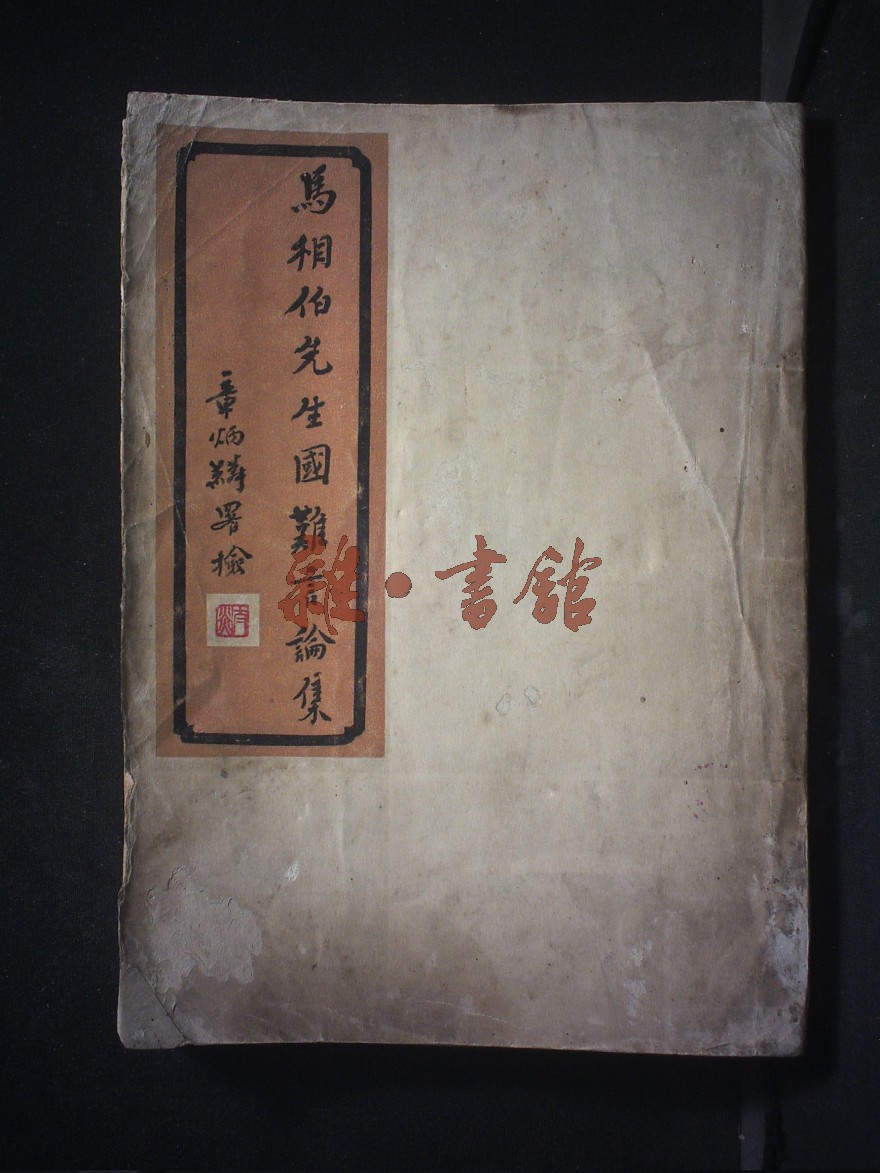 馬相伯先生國難言論集
章炳麟署檢
雜·書館